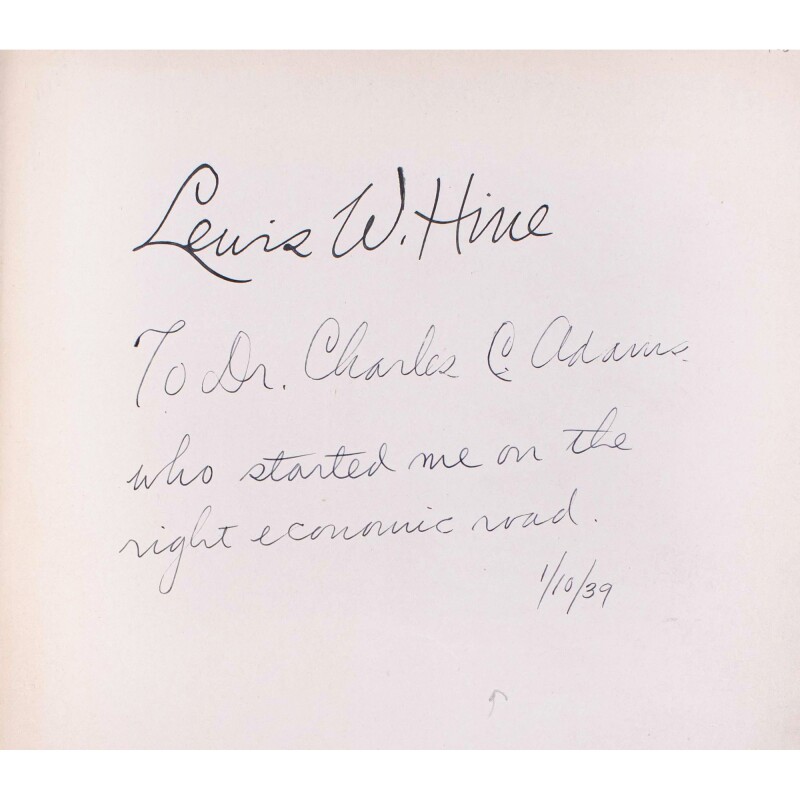 Lewis W. Hine
To Dr. Charles C. Adams.
who started me on the
right economic road.
1/10/39